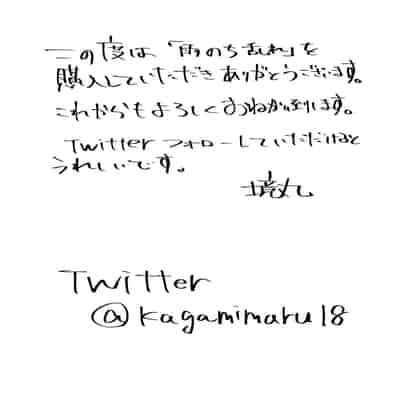 この度は「雨のち乱れ」を
購入していただきありがとうございます。
これからもよろしくおねがい致します。
Twitterフォローしていただけると
うれしいです。
境丸
Twitter
@kagamimaru18